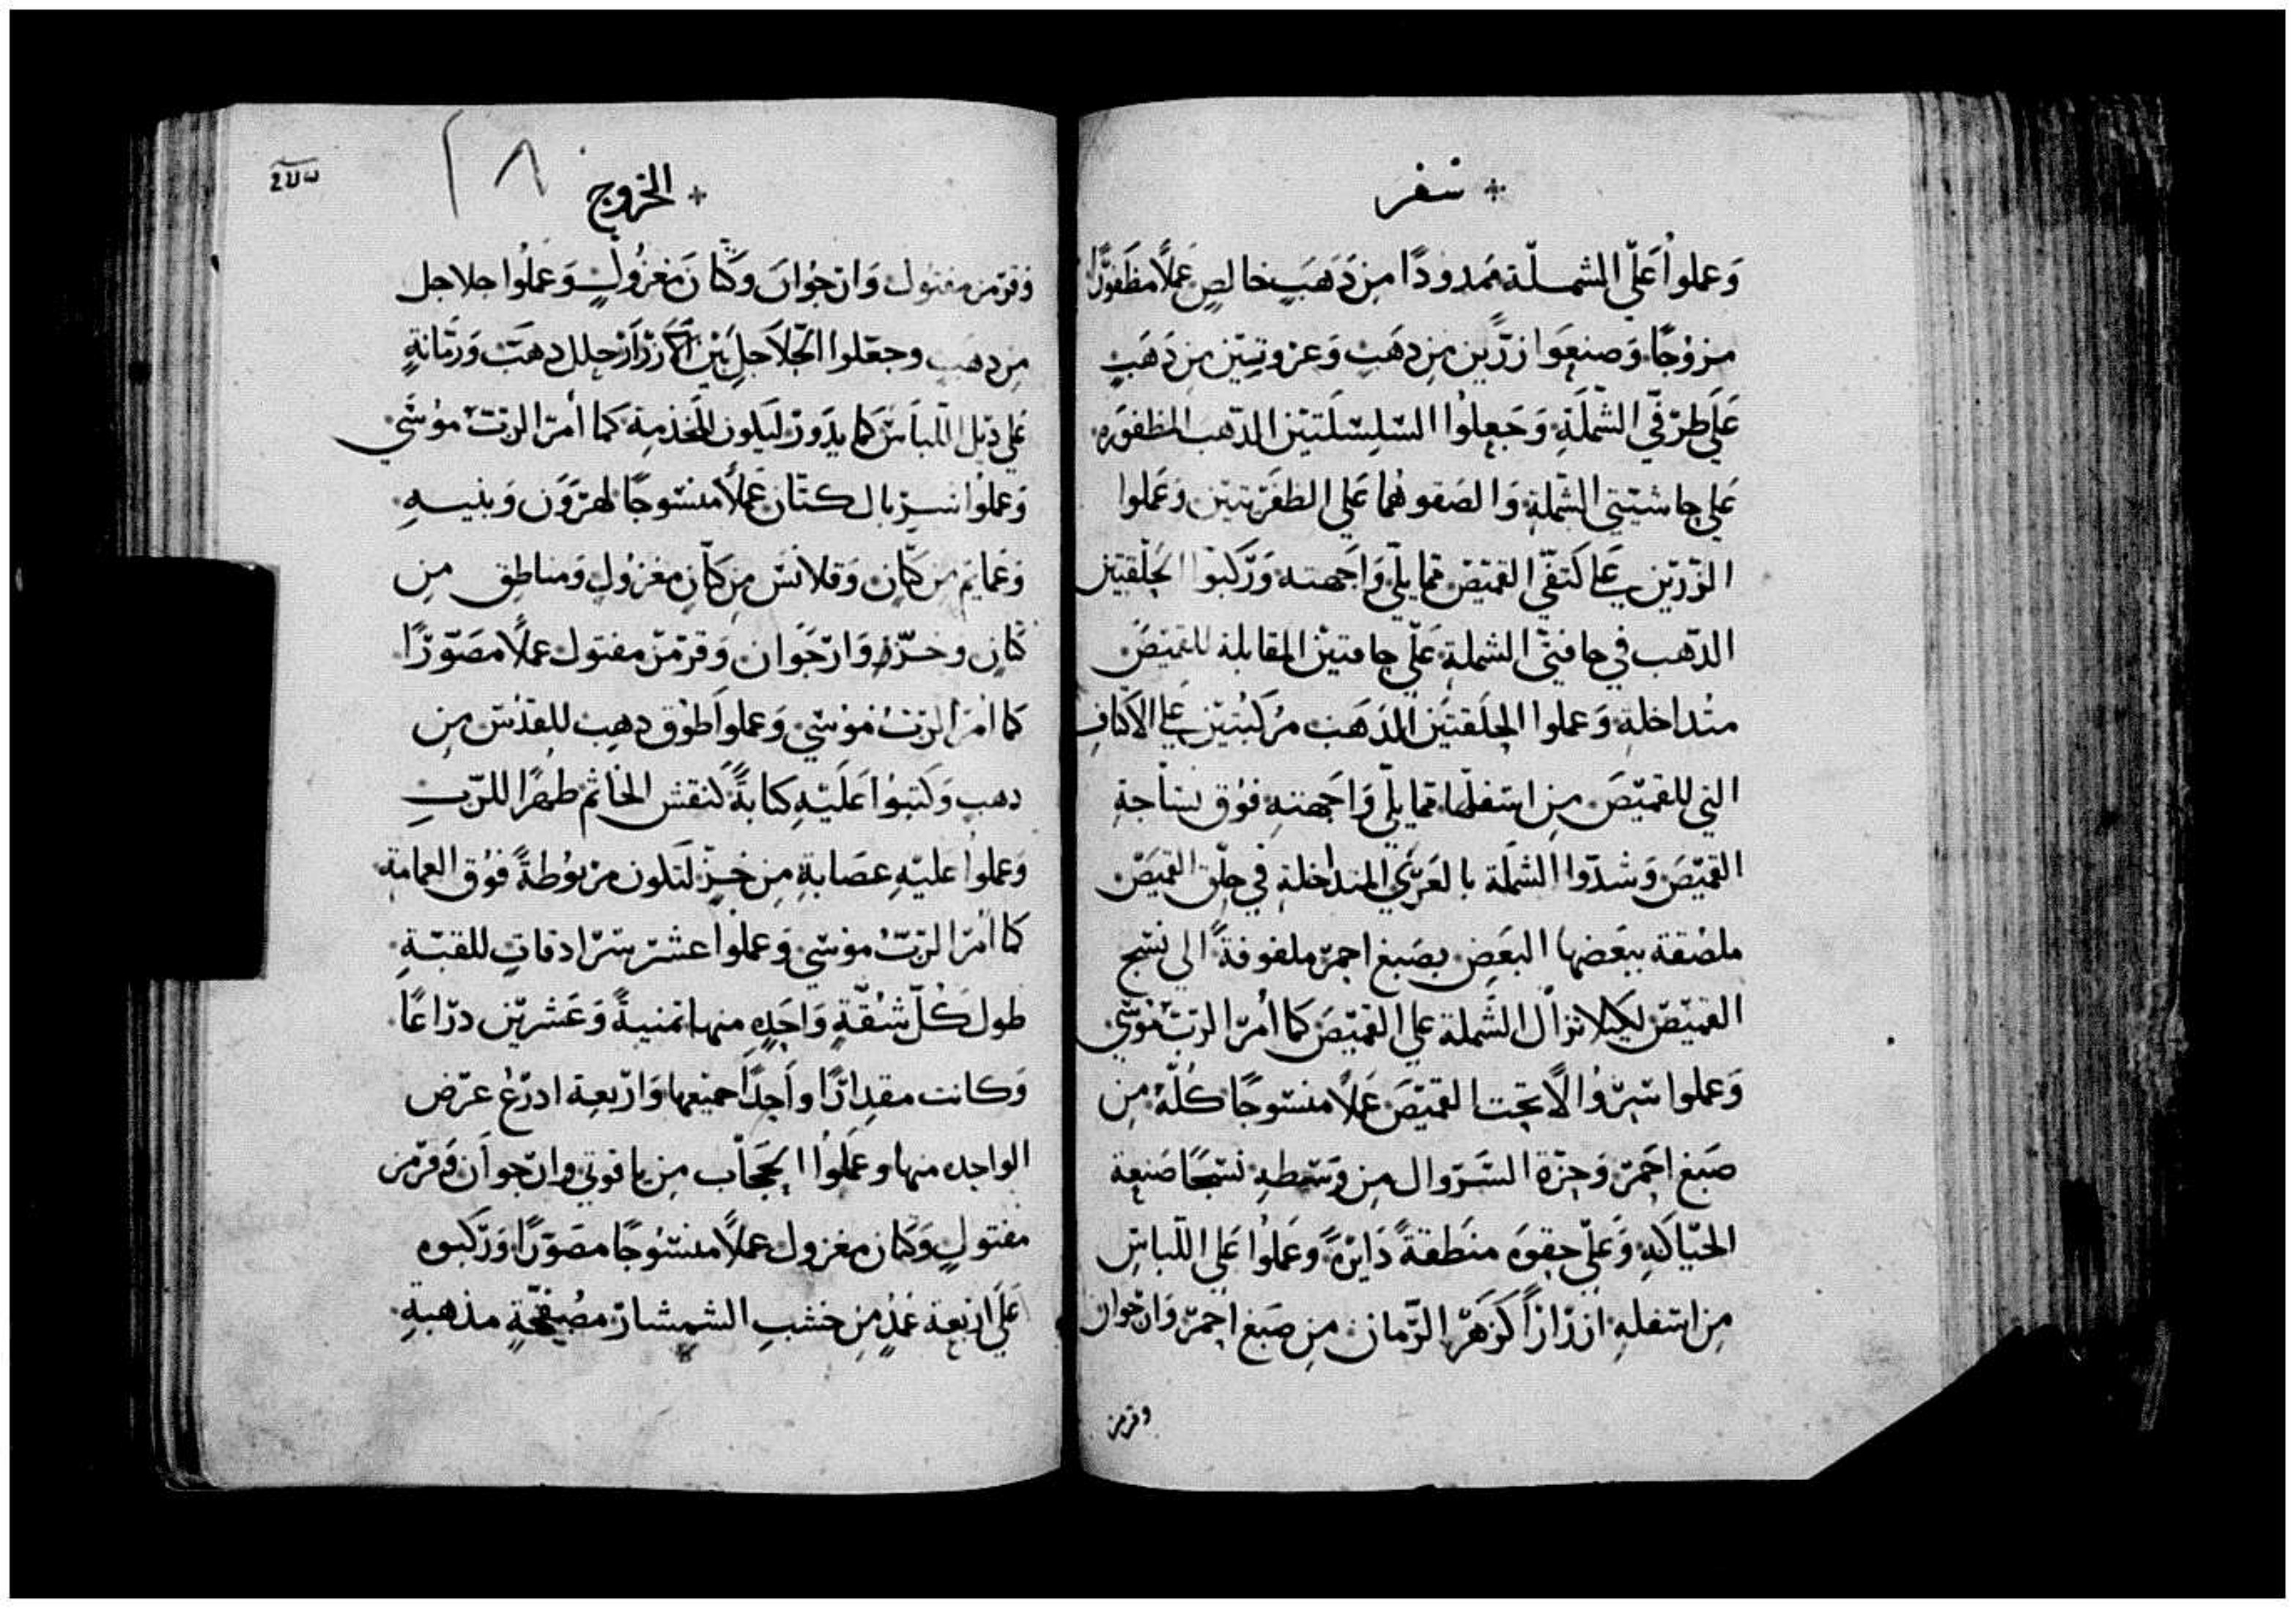 سفر
وَعملواْ عَلى الشمـلّة ممدودًا مِن دَهَبٍ خالصٍ عَملاً مظفورًا
مزوُجًا وَصنعَوا زرّين مِن دهَبٍ وَعرْوتيَن مِن دَهَبٍ
عَلَي طرْفَي الشَّملَةِ وَجَعلوُا السّلِسّلَتيَن الدّهب المظفورَه
عَلي حاشيَتي الشّملة وَالصَقوهُما عَلي الظفرَتيَن وَعَملوا
الزّرَيَن علي كتفَي القميَص ممّا يلي وَاجَهته وَرَّكبَوا الحَلقتيَن
الدّهب في حافتَي الشملةِ عَلي حافتيَن المقابلة للقميَص
متداخلةِ وَعملوا الحلَقتيَن الدَهَب مرُكبُتيَن علي الاكتافِ
التي للقميَصَ مِن اسَفلها ممّا يلي وَاجَهَتهِ فوُق نسَاجةِ
القميَصَ وَشدّوا الشملَة بالعَرَي المتداخلةِ في حلَق القميَصَ
ملصُقة ببَعَضها البَعَضِ بصَبغ احمَر ملفوفةً الي نسَج
القميَصَ لكيلا تزال الشَملة علي القميَصَ كما أمَر الربّ موُسَي
وَعملوا سَرْوُالاً تحت القميَصَ عَملاً منسَوجًا كلّهُ مِن
صَبغ احَمرَ وَحزّة السَرَوال مِن وَسَطهِ نسَجًا صَنعة
الحيّاكَهِ وَعَلي حقوَه منَطقةً دَايَرهً وَعَملُوا عَلي اللّباسِ
مِن اسَفلهِ ازرَارًا كزَهَر الرَّمان مِن صَبغ احمَر وَارجوان
وقرمز
الخرَوج
وَقرَمز مفتوُل وَارجوُان وَكتاَن مَغزُولٍ وَعَملُوا جلاجل
مِن دهَبٍ وجعَلوا الجَلاَجلِ بَيَن الازرَار جلل دهَبَ وَرمَّانةٍ
عَلي ديَل اللّباسَ كما يدَورَ ليَكون للخَدمِة كما أمَر الربّ موُسَي
وَعملوُا سَربال كتّان عَملاً منسَوجًا لهرَوَن وَبنيـهِ
وَعمَايمَ مِن كتّانِ وَقلانسَ مِن كتّانٍ مغزوُلٍ وَمناطق مِن
كتّانٍ وخـزّ وَارَجَوان وَقرَمزَ مفتول عملاً مصَوّرًا
كما امَر الربُ موُسَي وَعملوا طوُق دهِب للقدُسَ مِن
دهبٍ وَكتبوُا عَلَيَهِ كتابةً كنَقش الخاتمَ طهرًا للربِ
وَعملوُا عليَهِ عصَابةٍ مِن خـزّ لتَكون مرَبوُطةً فوُق العمامةِ
كما امَر الربُ موُسَي وَعملوُا عشَر سَرادقاتٍ للقبّـةِ
طول كُلّ شقّةٍ وَاحَدِه منها تمنيـةً وَعشرَيَن درَاعًا
وَكانت مقدِارًا واحَدًا جميَعها وَارَبعة ادرَعُ عرَض
الواحده منها وعمَلوُا الحجَاب مِن ياقوتي وارجوان وَقرَمز
مفتولٍ وَكتان مغزول عملاً منسَوُجًا مصَوّرًا وَرّكبوه
عَلَي ارَبعة عمُدٍ مِن خشَبِ الشمشارَ مصُفحّةٍ مذهبةِ